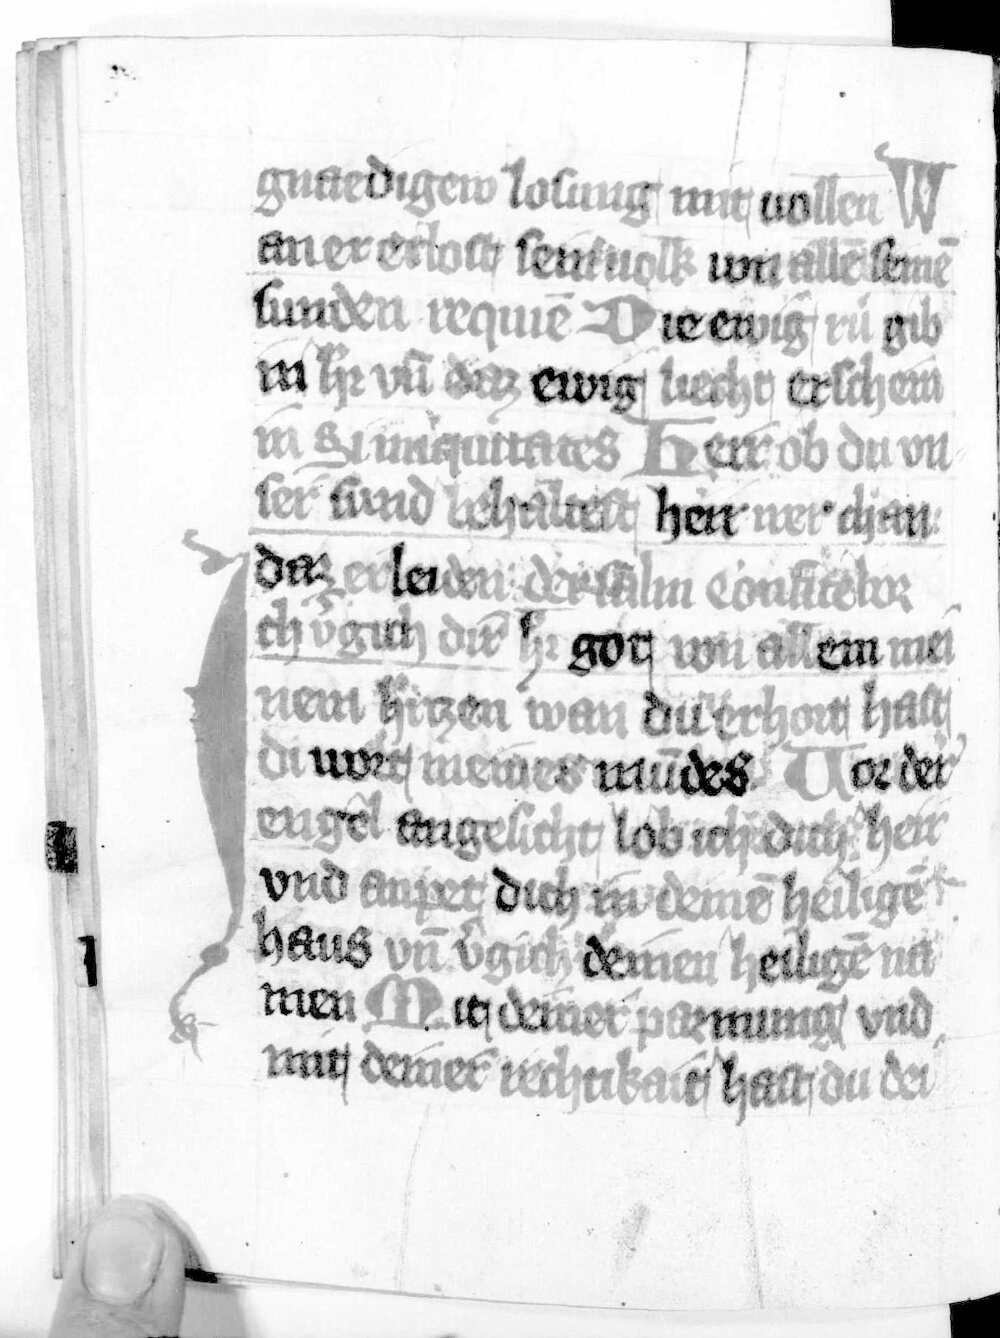 gnaedigew losung mit vollen W
an er erlost sein uolk von allē seinē
sunden requiē Die ewig rů gib
in hr vn̄ daz ewig liecht erschein
in Si iniquitates Herr ob du vn
ser sund behaltest herr wer chan
daz erleiden der salm Confitebor
Ich v̄gich dir hr got von allem mei
nem hertzen wan du erhort hast
di wort meines mūdes Vor der
engel angesicht lob ich dich herr
vnd anpet dich in deinē heiligē
haus vn̄ v̄gich deinen heiligē na
men Mit deiner parmung vnd
mit deiner rechtikait hast du dei